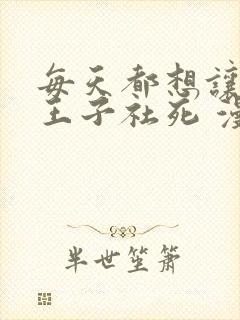 每天都想讓
王子社死
半世笙簫